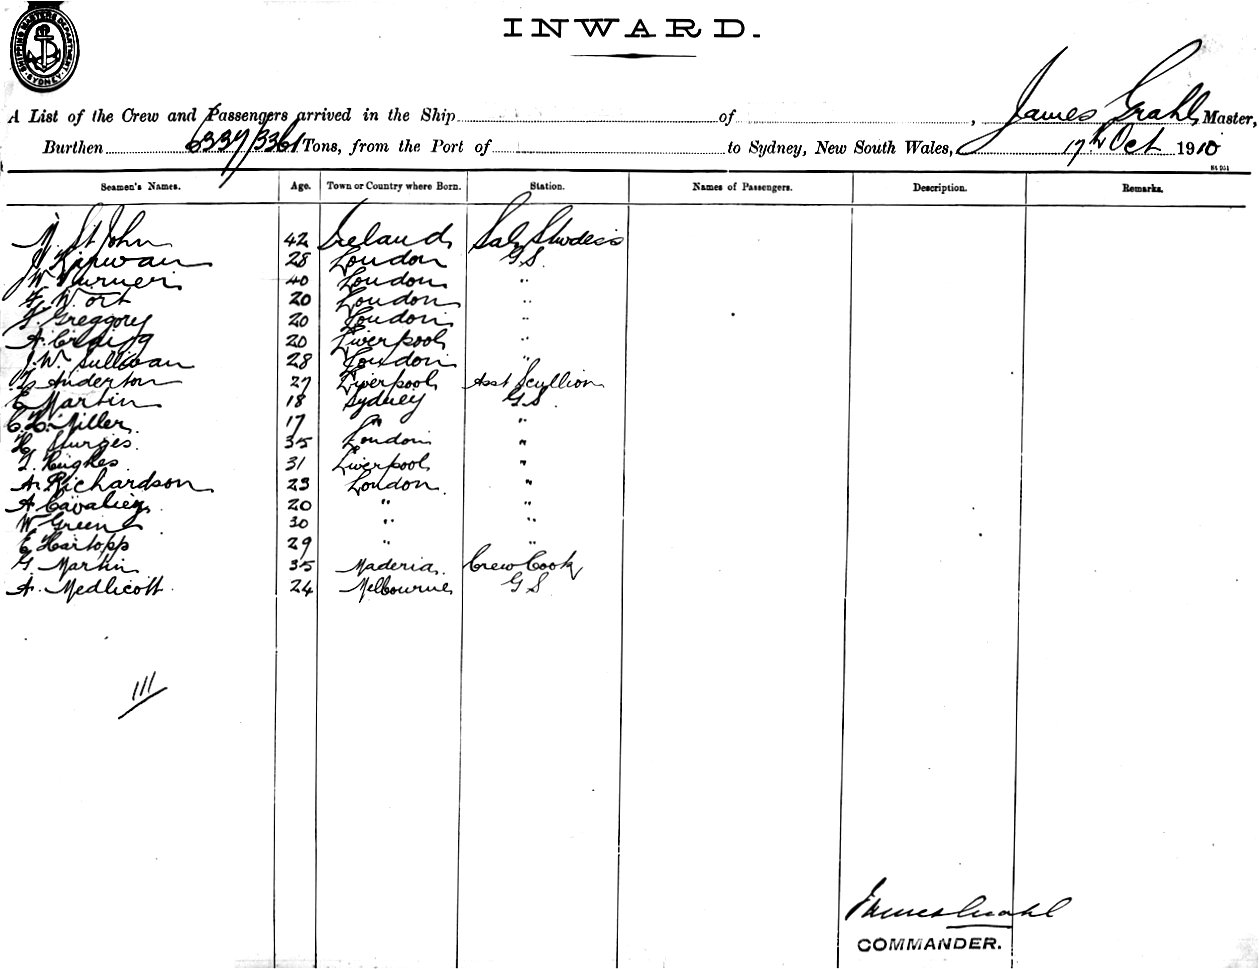 SHIPPING MASTERS DEPARTMENT
SYDNEY
INWARD.
A List of the Crew and Passengers arrived in the Ship of , James Grahl, Master,
Burthen 6337/3361 Tons, from the Port of to Sydney, New South Wales, 17th Oct 1910
Seamen's Names. Age. Town or Country where Born. Station. Names of Passengers. Description. Remarks.
M. St John 42 Ireland Sal. Stwdess
J Kirwan 28 London G.S.
J W Turner 40 London "
F. Wort 20 London "
F. Greggory 20 London "
A. Craigg 20 Liverpool "
J. W. Sullivan 28 London "
Anderton 27 Liverpool Asst Scullion
E Martin 18 Sydney G.S.
C. H. Miller. 17 " "
H. Sturges. 35 London "
T. Hughes 31 Liverpool "
A. Richardson 23 London "
A Cavalier 20 " "
W. Green 30 " "
E Hartopp 29 " "
G. Martin 35 Maderia. Crew Cook
A. Medlicott 24 Melbourne G S
111
James Grahl
COMMANDER.